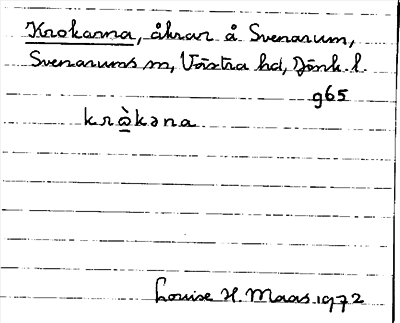 Krokarna, åkrar å Svenarum,
Svenarums sn, Västra hd, Jönk. l.
g65
krò̠kəna
Louise H. Maas 1972